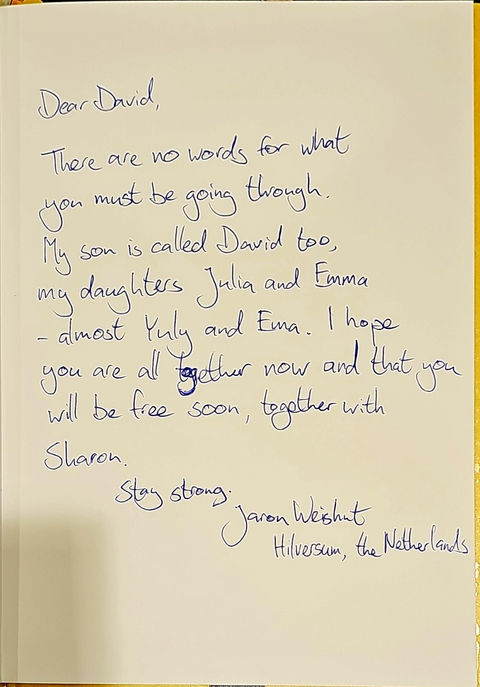 Dear David,
There are no words for what
you must be going through.
My son is called David too,
my daughters Julia and Emma
- almost Yuly and Ema. I hope
you are all together now and that you
will be free soon, together with
Sharon.
Stay strong.
Jaron Weishut
Hilversum, the Netherlands